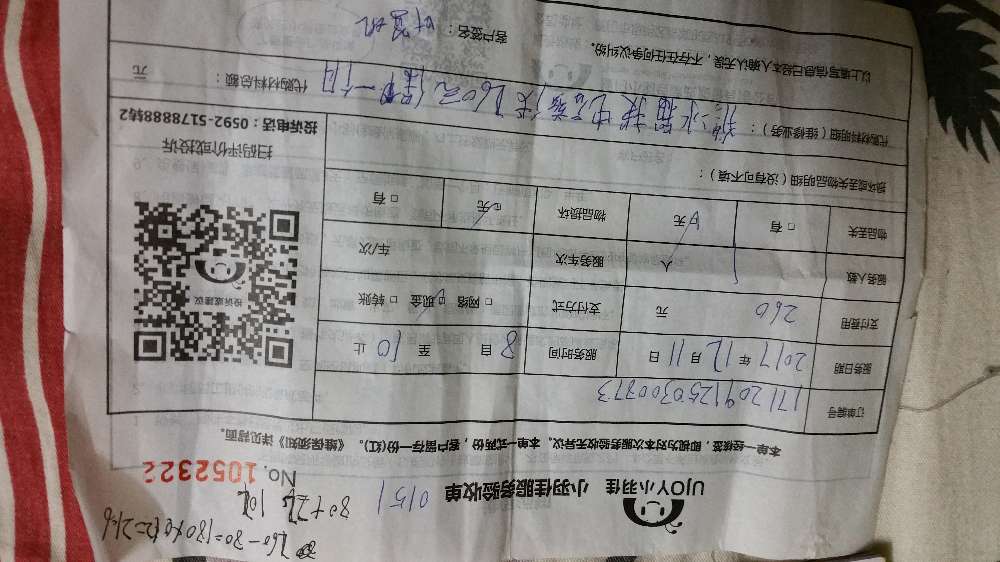 UJOY小羽佳 小羽佳服务验收单
0151
No. 1052322
本单一经核签，即视为对本次服务验收无异议。本单一式两份，客户留存一份(红)。《维保须知》详见背面。
订单编号 1712091250300773
服务日期 2017 年 12 月 11 日 服务时间 8 自 至 10 止
支付费用 260 元 支付方式 □ 网络 □ 现金 □ 转账
服务人数 1 人 服务车次 车/次
物品丢失 □ 有 □ 无 物品损坏 □ 无 □ 有
投诉或建议
扫码评价或投诉
投诉电话：0592-5178888转2
损坏或丢失物品明细（没有可不填）：
代购材料明细（维修业务）：
代购材料总额： 元
以上填写信息已经本人确认无误，不存在任何争议纠纷。
客户签名：